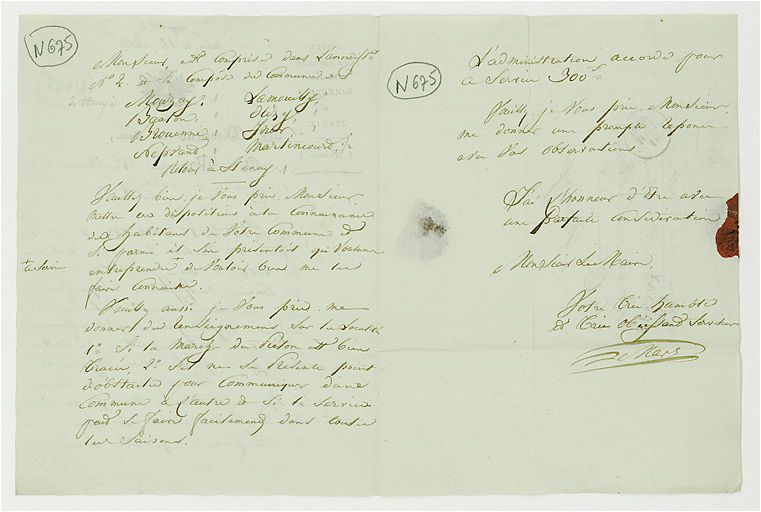 N675
Monsieur, est Comprise dans L'arrondisst
N° 2 et Se Compose des Communes
Mouzay, Lamouilly,
Olizy,
Brouenne, Inor
Nepvand Martincourt &
Retour à Stenay
Veuillez bien je Vous prie, Monsieur,
mettre ces dispositions à la Connaissance
des habitans de Votre Commune et
Si parmi il S'en présentoit qui Voulance
+ce Service
entreprendre + de Vouloir bien me les
faire connaitre.
Veuillez aussi je Vous prie me
donner des renseignemens Sur
1° Si la marche du Pieton est bien
tracée, 2° S'il ne Se Présente point
d'obstacles pour Communiquer d'une
Commune à l'autre et Si le Service
peut Se faire facilement dans toutes
les Saisons.
N675
L'administration accorde pour
ce Service 300f
Veuillez je Vous prie, Monsieur,
me donner une prompte reponse
avec Vos observations.
J'ai l'honneur d'être avec
une parfaite consideration
Monsieur Le Maire,
Votre très humble
et très Obéissand Serviteur